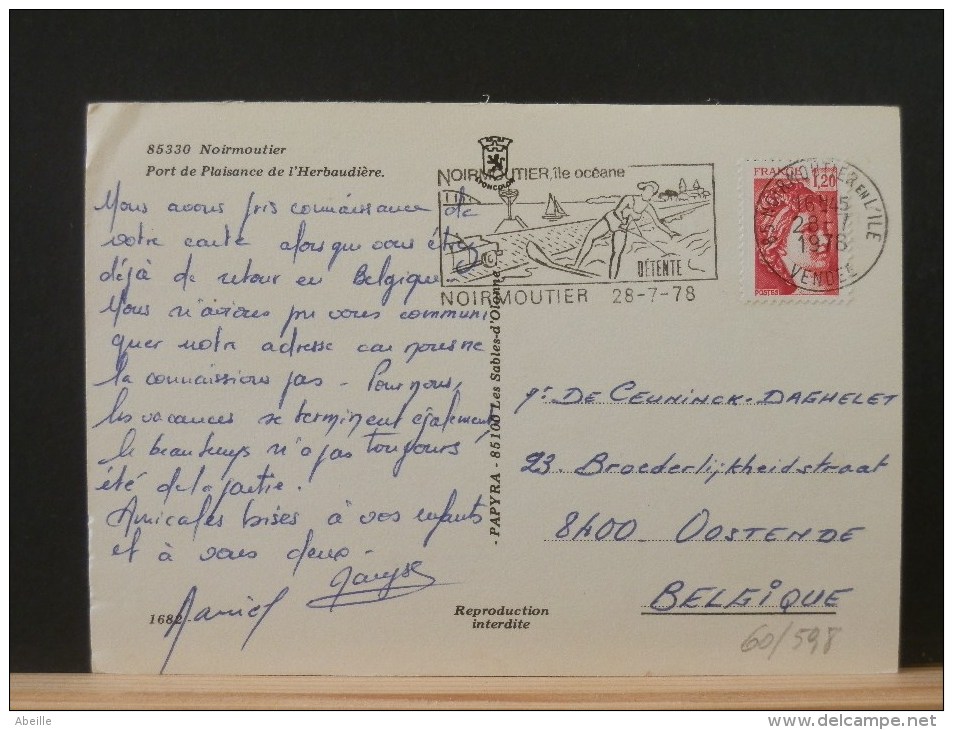 85330 Noirmoutier
Port de Plaisance de l'Herbaudière.
Nous avons pris connaissance de
votre carte alors que vous étiez
déjà de retour en Belgique.
Nous n'avions pu vous communi
quer notre adresse car nous ne
la connaissions pas - Pour nous,
les vacances se terminent également,
le beau temps n'a pas toujours
été de la partie.
Amicales bises à vos enfants
et à vous deux -
Daniel
1682
- PAPYRA - 85100 Les Sables-d'Olonne
Reproduction
interdite
NOIRMOUTIER, île océane
DÉTENTE
NOIRMOUTIER 28-7-78
FRANCE 1,20
POSTES
85 NOIRMOUTIER EN L'ILE
16H45
28-7
1978
VENDEE
DE CEUNINCK-DAGHELET
23. Broederlijkheidstraat
8400 OOSTENDE
BELGIQUE
60/598
Abeille
www.delcampe.net